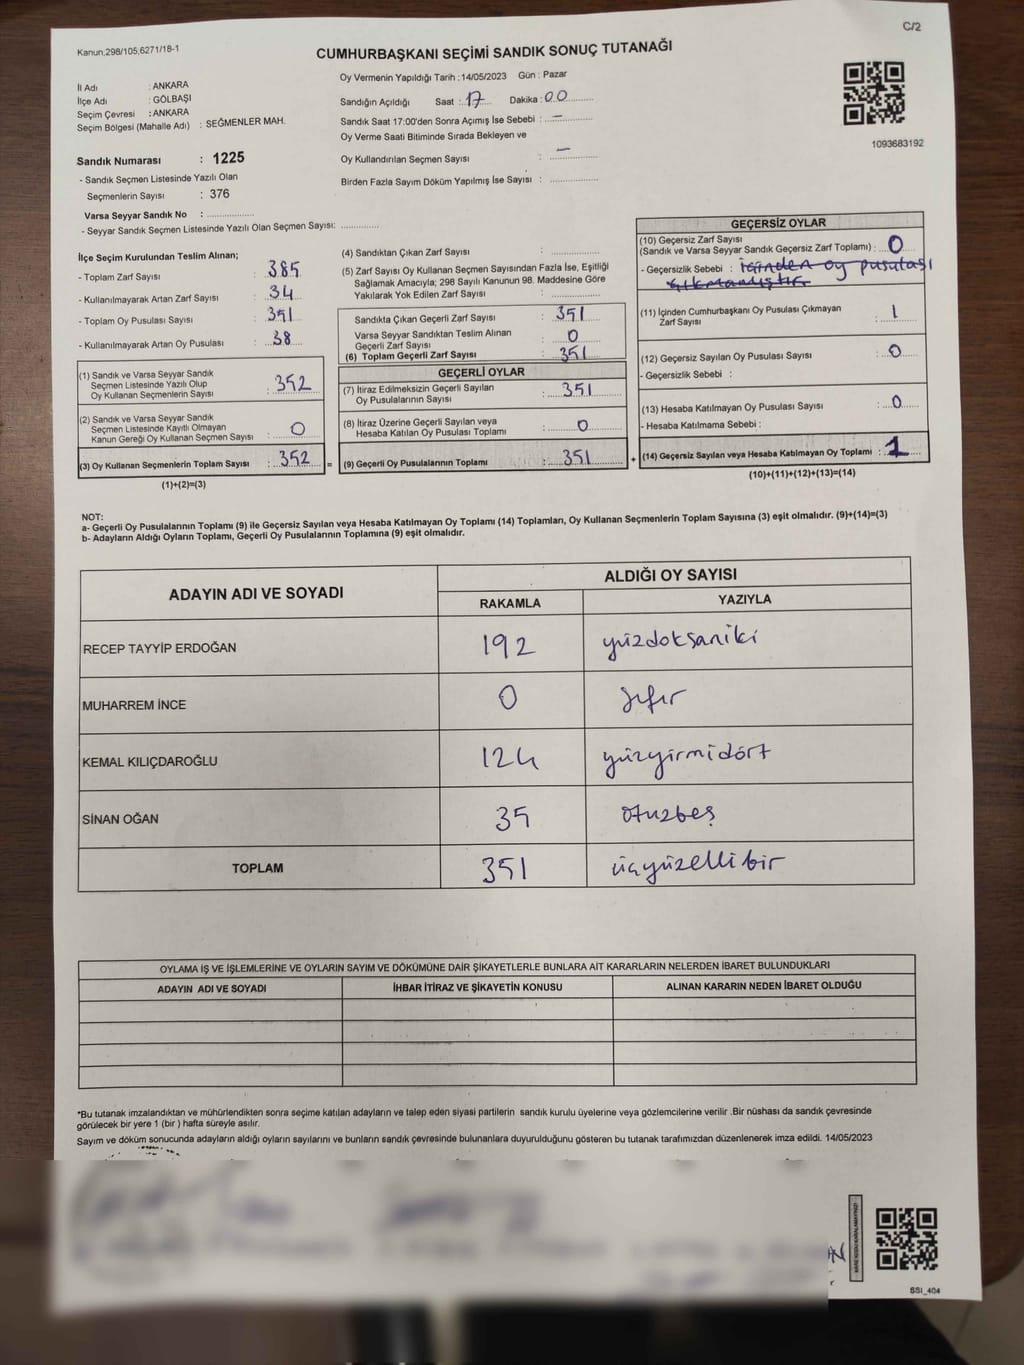 Kanun,298/105,6271/18-1
C/2
CUMHURBAŞKANI SEÇİMİ SANDIK SONUÇ TUTANAĞI
İl Adı : ANKARA
İlçe Adı : GÖLBAŞI
Seçim Çevresi : ANKARA
Seçim Bölgesi (Mahalle Adı) : SEĞMENLER MAH.
Sandık Numarası : 1225
- Sandık Seçmen Listesinde Yazılı Olan
Seçmenlerin Sayısı : 376
Varsa Seyyar Sandık No : ...............
- Seyyar Sandık Seçmen Listesinde Yazılı Olan Seçmen Sayısı: ............
Oy Vermenin Yapıldığı Tarih : 14/05/2023 Gün : Pazar
Sandığın Açıldığı Saat : 17 Dakika : 00
Sandık Saat 17:00'den Sonra Açımış İse Sebebi : —
Oy Verme Saati Bitiminde Sırada Bekleyen ve
Oy Kullandırılan Seçmen Sayısı : —
Birden Fazla Sayım Döküm Yapılmış İse Sayısı : ...............
1093683192
İlçe Seçim Kurulundan Teslim Alınan;
- Toplam Zarf Sayısı : 385
- Kullanılmayarak Artan Zarf Sayısı : 34
- Toplam Oy Pusulası Sayısı : 391
- Kullanılmayarak Artan Oy Pusulası : 38
(1) Sandık ve Varsa Seyyar Sandık
Seçmen Listesinde Yazılı Olup
Oy Kullanan Seçmenlerin Sayısı : 352
(2) Sandık ve Varsa Seyyar Sandık
Seçmen Listesinde Kayıtlı Olmayan
Kanun Gereği Oy Kullanan Seçmen Sayısı : 0
(3) Oy Kullanan Seçmenlerin Toplam Sayısı : 352 =
(1)+(2)=(3)
(4) Sandıktan Çıkan Zarf Sayısı : ...............
(5) Zarf Sayısı Oy Kullanan Seçmen Sayısından Fazla İse, Eşitliği
Sağlamak Amacıyla; 298 Sayılı Kanunun 98. Maddesine Göre
Yakılarak Yok Edilen Zarf Sayısı : ...............
Sandıkta Çıkan Geçerli Zarf Sayısı : 351
Varsa Seyyar Sandıktan Teslim Alınan
Geçerli Zarf Sayısı : 0
(6) Toplam Geçerli Zarf Sayısı : 351
GEÇERLİ OYLAR
(7) İtiraz Edilmeksizin Geçerli Sayılan
Oy Pusulalarının Sayısı : 351
(8) İtiraz Üzerine Geçerli Sayılan veya
Hesaba Katılan Oy Pusulası Toplamı : 0
(9) Geçerli Oy Pusulalarının Toplamı : 351 +
GEÇERSİZ OYLAR
(10) Geçersiz Zarf Sayısı
(Sandık ve Varsa Seyyar Sandık Geçersiz Zarf Toplamı) : 0
- Geçersizlik Sebebi : içinden oy pusulası
çıkmamıştır
(11) İçinden Cumhurbaşkanı Oy Pusulası Çıkmayan
Zarf Sayısı : 1
(12) Geçersiz Sayılan Oy Pusulası Sayısı : 0
- Geçersizlik Sebebi :
(13) Hesaba Katılmayan Oy Pusulası Sayısı : 0
- Hesaba Katılmama Sebebi :
(14) Geçersiz Sayılan veya Hesaba Katılmayan Oy Toplamı : 1
(10)+(11)+(12)+(13)=(14)
NOT:
a- Geçerli Oy Pusulalarının Toplamı (9) ile Geçersiz Sayılan veya Hesaba Katılmayan Oy Toplamı (14) Toplamları, Oy Kullanan Seçmenlerin Toplam Sayısına (3) eşit olmalıdır. (9)+(14)=(3)
b- Adayların Aldığı Oyların Toplamı, Geçerli Oy Pusulalarının Toplamına (9) eşit olmalıdır.
ADAYIN ADI VE SOYADI ALDIĞI OY SAYISI
RAKAMLA YAZIYLA
RECEP TAYYİP ERDOĞAN 192 yüzdoksaniki
MUHARREM İNCE 0 sıfır
KEMAL KILIÇDAROĞLU 124 yüzyirmidört
SİNAN OĞAN 35 otuzbeş
TOPLAM 351 üçyüzellibir
OYLAMA İŞ VE İŞLEMLERİNE VE OYLARIN SAYIM VE DÖKÜMÜNE DAİR ŞİKAYETLERLE BUNLARA AİT KARARLARIN NELERDEN İBARET BULUNDUKLARI
ADAYIN ADI VE SOYADI İHBAR İTİRAZ VE ŞİKAYETİN KONUSU ALINAN KARARIN NEDEN İBARET OLDUĞU
*Bu tutanak imzalandıktan ve mühürlendikten sonra seçime katılan adayların ve talep eden siyasi partilerin sandık kurulu üyelerine veya gözlemcilerine verilir .Bir nüshası da sandık çevresinde
görülecek bir yere 1 (bir ) hafta süreyle asılır.
Sayım ve döküm sonucunda adayların aldığı oyların sayılarını ve bunların sandık çevresinde bulunanlara duyurulduğunu gösteren bu tutanak tarafımızdan düzenlenerek imza edildi. 14/05/2023
SSI_404